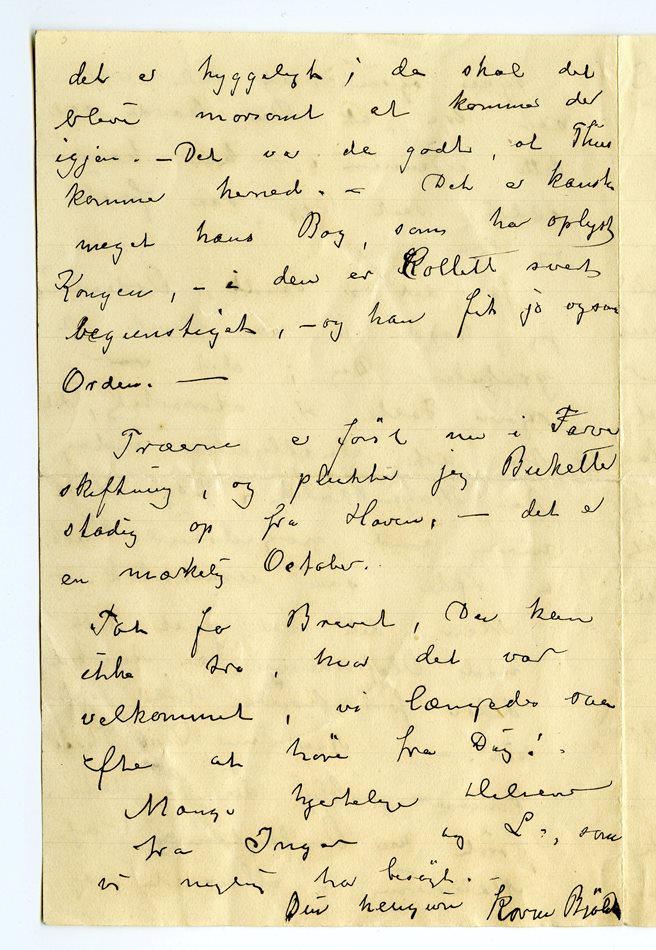 det er hyggeligt; da skal det
blive morsomt at komme der
igjen. – Det var da godt, at Thiis
komme herned. – Det er kanske
meget hans Bog, som har oplyst
Kongen, – i den er Kollett svært
begunstiget, – og han fik jo ogsaa
Orden. —
Træerne er først nu i Farve
skiftning, og plukke jeg Buketter
stadig op fra Haven, — det er
en mærkelig October.
Tak for Brevet, Du kan
ikke tro, hvor det var
velkomment, vi længtedes saa
efter at høre fra Dig! .
Mange hjertelige Hilsener
fra Inger og L., som
vi nylig har besøgt. –
Din hengivne Karen Bjöl